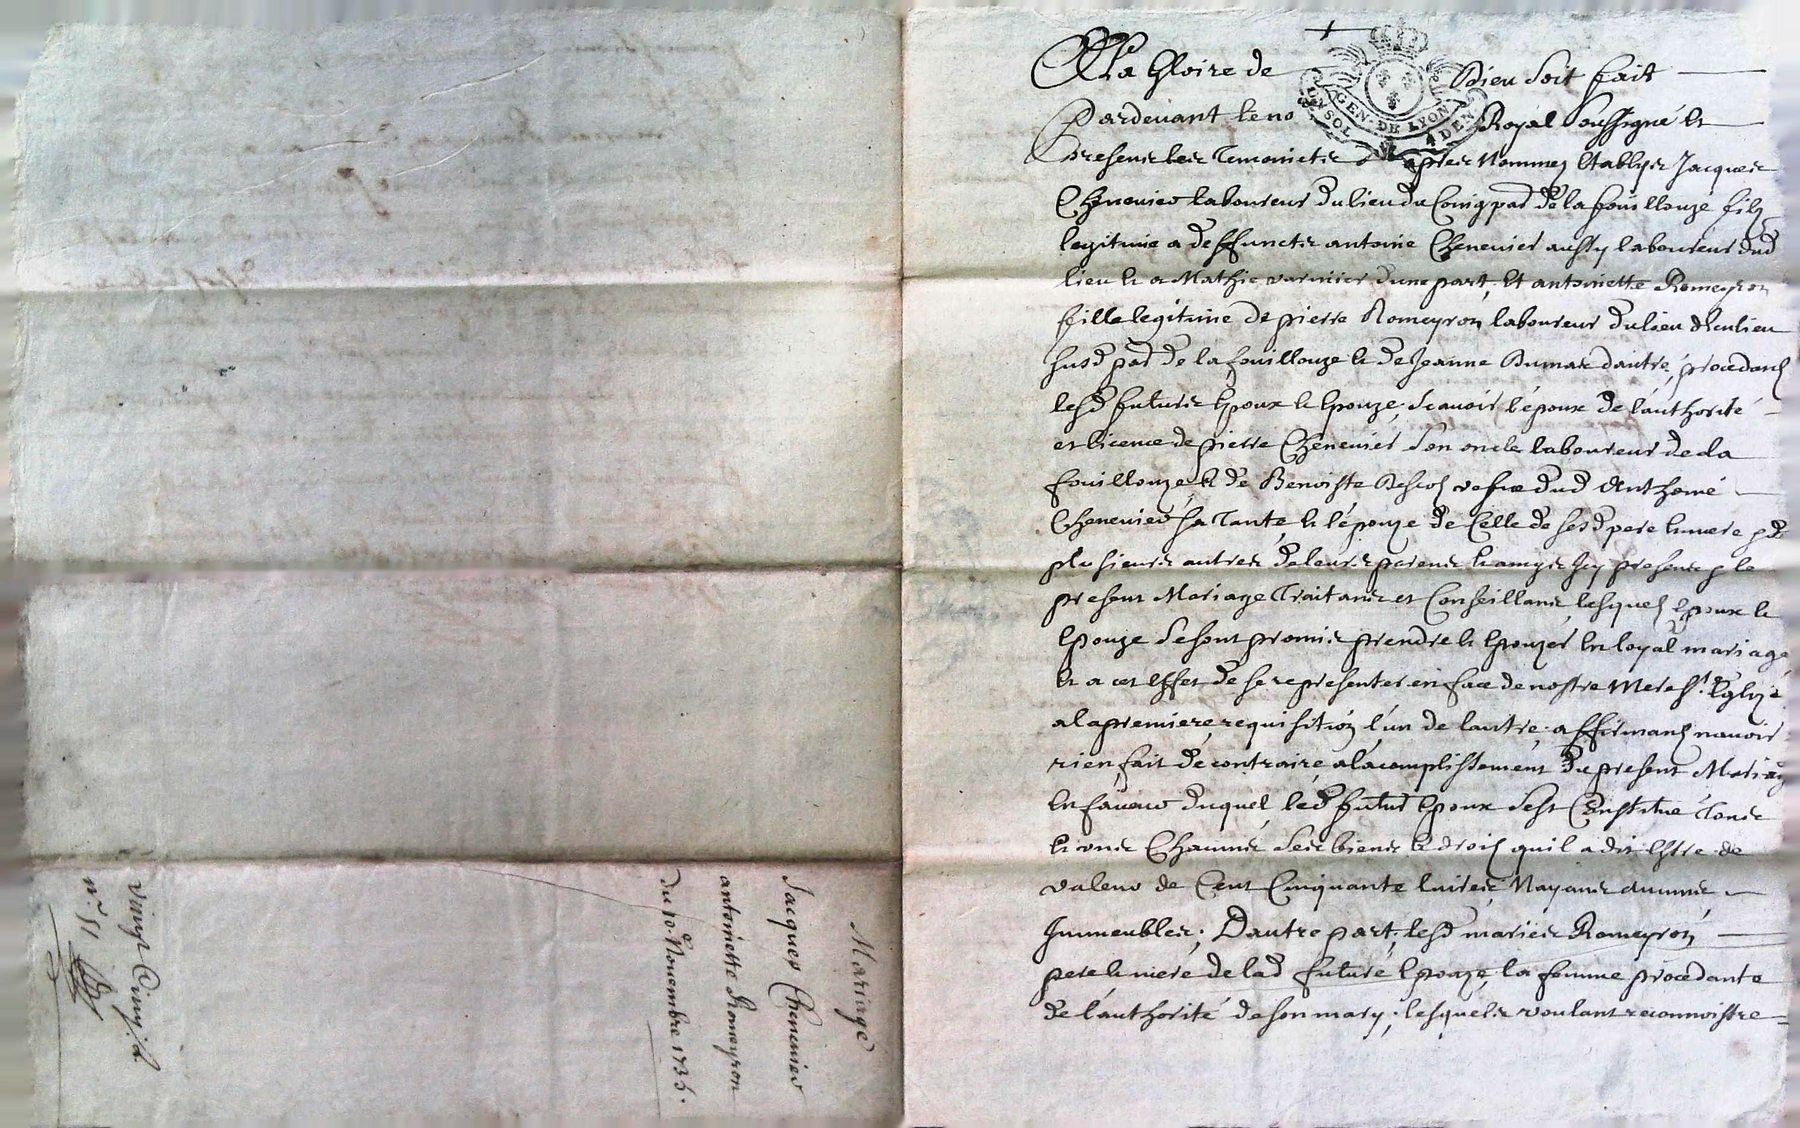 A La Gloire de Dieu soit fait
Pardevant le no Royal soussigné et
GEN. DE LYON
presens les Temoins apres Nommez Etablys Jacques
Chenevier laboureur du lieu du Coing par de la fouillouze filz
legitime a deffuncts antoine Chenevier aussy laboureur dud
lieu et a Mathie varinier d'une part, Et antoinette Romeyron
fille legitime de pierre Romeyron laboureur du lieu
susd par de la fouillouze et de Jeanne Dumas dautre, procedans
lesd futurs Epoux et Epouze scavoir l'époux de l'authorité
et licence de pierre Chenevier son oncle laboureur de la
fouillouze et de Benoiste vefve dud Anthoine
Chenevier sa Tante, et l'épouze de Celle de sesd pere et mere p de
plusieurs autres de leurs parens et amys Icy presens p le
present Mariage Traitans et Conseillans, lesquels Epoux et
Epouze se sont promis prendre et Epouzer en loyal mariage
et a cet effet de se representer en face de nostre Mere ste Eglize
a la premiere requisition l'un de l'autre, affirmans n'avoir
rien fait de contraire a l'acomplissement du present Mariage
En faveur duquel led futur Epoux s'est Constitue Tous
et vns Chacuns ses biens et droits qu'il a dit Estre de
valeur de Cent Cinquante livres N'ayant aucuns
Immeubles; D'autre part, lesd mariés Romeyron
pere et mere de lad future Epouze, la femme procedante
de l'authorité de son mary, lesquels voulant reconnoistre
Mariage
Jacques Chenevier
antoinette Romeyron
du 10e Novembre 1735.
vingt Cinq s. d.
no 51